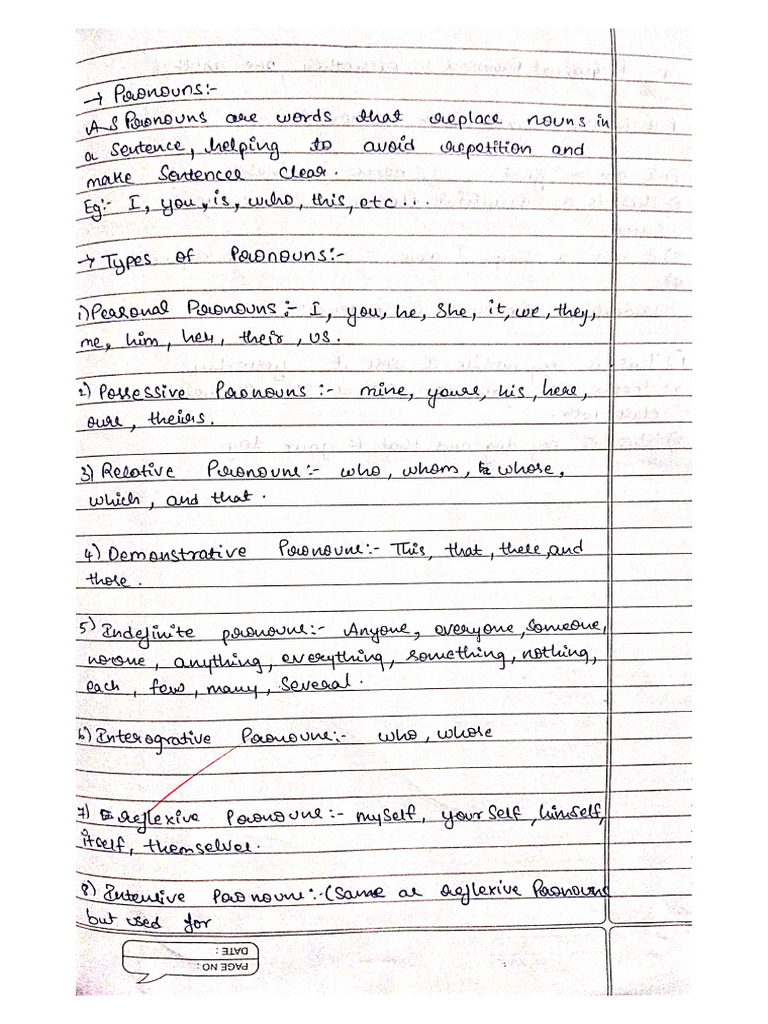 → Pronouns:-
A S Pronouns are words that replace nouns in
a sentence, helping to avoid repetition and
make Sentences clear.
Eg:- I, you, is, who, this, etc...
→ Types of Pronouns:-
1) Personal Pronouns:- I, you, he, She, it, we, they,
me, him, her, their, us.
2) Possessive Pronouns:- mine, yours, his, hers,
ours, theirs.
3) Relative Pronouns:- who, whom, whose,
which, and that.
4) Demonstrative Pronouns:- This, that, these, and
those.
5) Indefinite pronouns:- Anyone, everyone, someone,
noone, anything, everything, something, nothing,
each, few, many, Several.
6) Interogrative Pronouns:- who, whose
7) Reflexive Pronouns:- myself, yourSelf, himself,
itself, themselves.
8) Intensive Pronouns:- (Same as Reflexive Pronouns
but used for
DATE :
PAGE NO :